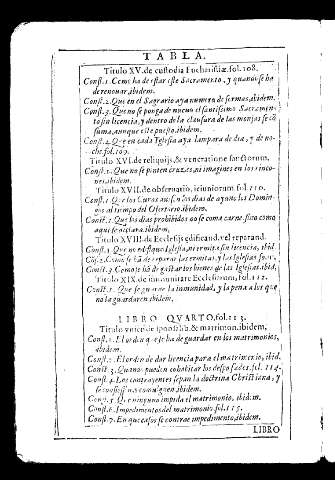 TABLA.
Titulo XV. de custodia Eucharistiæ. fol. 108.
Const. 1. Como ha de estar este Sacramento, y quando se ha
de renouar, ibidem.
Const. 2. Que en el Sagrario aya numero de formas, ibidem.
Const. 3. Que no se ponga de nueuo el santissimo Sacramen-
to sin licencia, y dentro de la clausura de las monjas se có
suma, aunque esté puesto, ibidem.
Const. 4. Que en cada Iglesia aya lampara de dia, y de no-
che. fol. 109.
Titulo XVI. de reliquijs, & veneratione sanctorum.
Const. 1. Que no se pinten cruzes, ni imagines en los rinco-
nes, ibidem.
Titulo XVII. de obseruatio. ieiuniorum fol. 110.
Const. 1. Que los Curas auisen los dias de ayuno los Domin-
gos al tiempo del Ofertorio, ibidem.
Const. Que los dias prohibidos no se coma carne, sino como
aqui se declara, ibidem.
Titulo XVIII. de Ecclesijs edificand. vel reparand.
Const. 1 Que no edifiquen Iglesia, ni ermita sin licencia, ibid.
Cõs. 2. Como se há de reparar las ermitas, y las Iglesias
Const. 3 Como se há de gastar los bienes de las Iglesias. ibid.
Titulo XIX. de immunitate Ecclesiarum, fol. 112.
Const. 1. Que se guarde la inmunidad, y la pena a los que
no la guardaren ibidem.
LIBRO QVARTO, fol. 113.
Titulo vnico de sponsalib. & matrimon. ibidem.
Const. 1. El orden que se ha de guardar en los matrimonios,
ibidem.
Const. 2. El orden de dar licencia para el matrimonio, ibid.
Const. 3. Quando pueden cohabitar los desposados. fol. 114.
Const. 4. Los contrayentes sepan la doctrina Christiana, y
se confiessen, y comulguen, ibidem.
Const. 5. Que ninguno impida el matrimonio, ibidem.
Const. 6. Impedimentos del matrimonio fol. 115.
Const. 7. En que casos se contrae impedimento, ibidem.
LIBRO